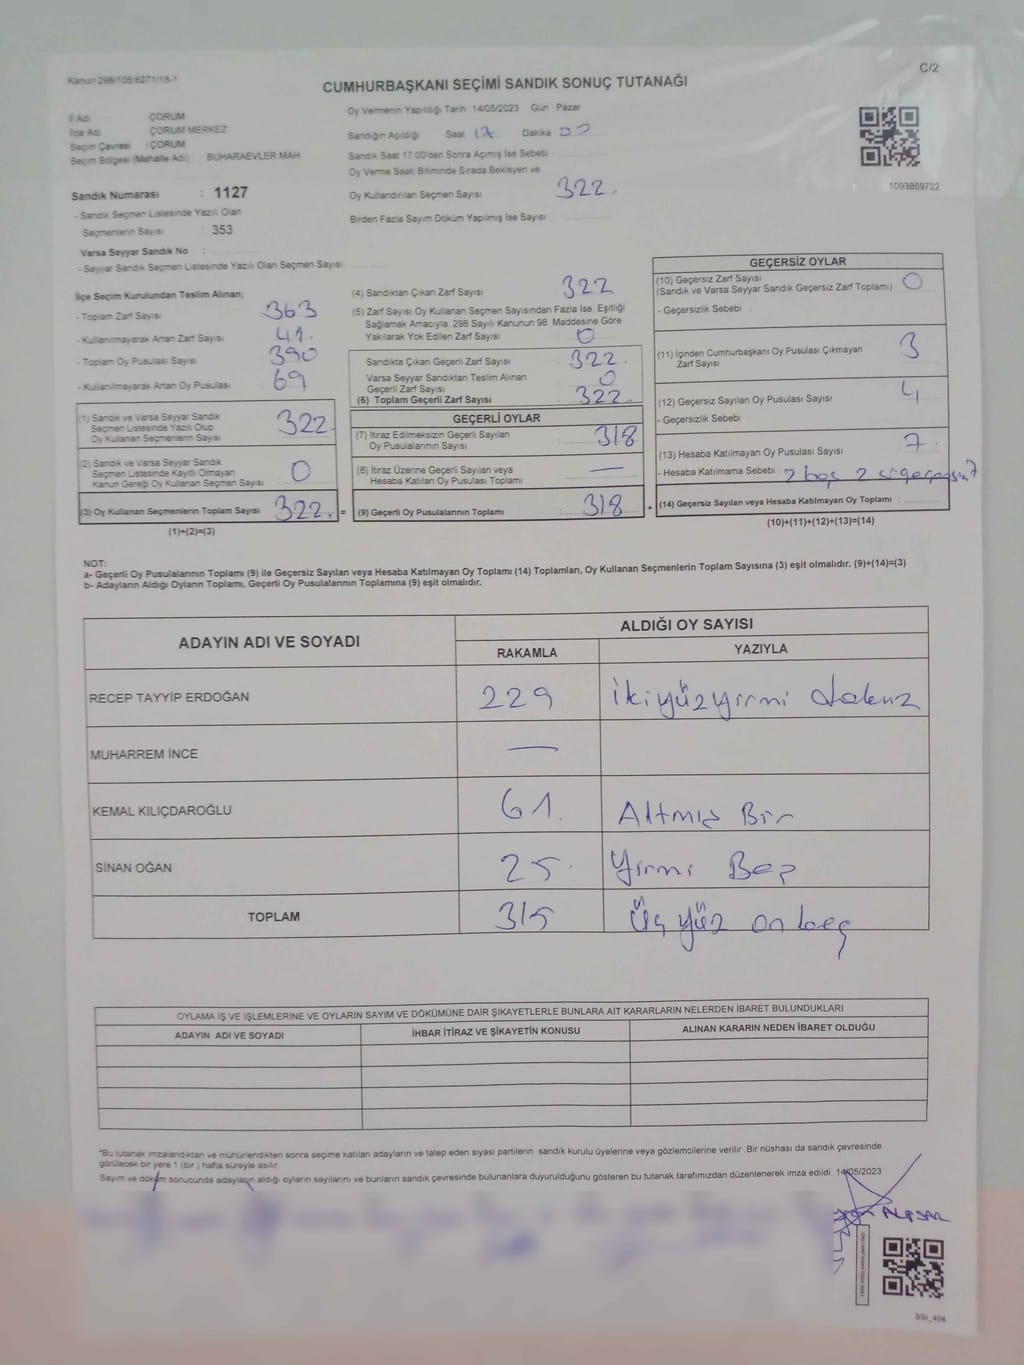 Kanun:298/105;6271/18-1
C/2
CUMHURBAŞKANI SEÇİMİ SANDIK SONUÇ TUTANAĞI
İl Adı : ÇORUM
İlçe Adı : ÇORUM MERKEZ
Seçim Çevresi : ÇORUM
Seçim Bölgesi (Mahalle Adı) : BUHARAEVLER MAH.
Sandık Numarası : 1127
- Sandık Seçmen Listesinde Yazılı Olan
Seçmenlerin Sayısı : 353
Varsa Seyyar Sandık No :
- Seyyar Sandık Seçmen Listesinde Yazılı Olan Seçmen Sayısı:
Oy Vermenin Yapıldığı Tarih :14/05/2023 Gün : Pazar
Sandığın Açıldığı Saat 17 Dakika 00
Sandık Saat 17.00'den Sonra Açımış İse Sebebi
Oy Verme Saati Bitiminde Sırada Bekleyen ve
Oy Kullandırılan Seçmen Sayısı 322
Birden Fazla Sayım Döküm Yapılmış İse Sayısı
1093859722
İlçe Seçim Kurulundan Teslim Alınan;
- Toplam Zarf Sayısı 363
- Kullanılmayarak Artan Zarf Sayısı 41
- Toplam Oy Pusulası Sayısı 390
- Kullanılmayarak Artan Oy Pusulası 69
(1) Sandık ve Varsa Seyyar Sandık
Seçmen Listesinde Yazılı Olup
Oy Kullanan Seçmenlerin Sayısı 322
(2) Sandık ve Varsa Seyyar Sandık
Seçmen Listesinde Kaydı Olmayan
Kanun Gereği Oy Kullanan Seçmen Sayısı 0
(3) Oy Kullanan Seçmenlerin Toplam Sayısı 322 =
(1)+(2)=(3)
(4) Sandıktan Çıkan Zarf Sayısı 322
(5) Zarf Sayısı Oy Kullanan Seçmen Sayısından Fazla İse, Eşitliği
Sağlamak Amacıyla, 298 Sayılı Kanunun 98. Maddesine Göre
Yakılarak Yok Edilen Zarf Sayısı 0
Sandıkta Çıkan Geçerli Zarf Sayısı 322
Varsa Seyyar Sandıktan Teslim Alınan
Geçerli Zarf Sayısı 0
(6) Toplam Geçerli Zarf Sayısı 322
GEÇERLİ OYLAR
(7) İtiraz Edilmeksizin Geçerli Sayılan
Oy Pusulalarının Sayısı 318
(8) İtiraz Üzerine Geçerli Sayılan veya
Hesaba Katılan Oy Pusulası Toplamı —
(9) Geçerli Oy Pusulalarının Toplamı 318 +
GEÇERSİZ OYLAR
(10) Geçersiz Zarf Sayısı
(Sandık ve Varsa Seyyar Sandık Geçersiz Zarf Toplamı) 0
- Geçersizlik Sebebi :
(11) İçinden Cumhurbaşkanı Oy Pusulası Çıkmayan
Zarf Sayısı 3
(12) Geçersiz Sayılan Oy Pusulası Sayısı 4
- Geçersizlik Sebebi
(13) Hesaba Katılmayan Oy Pusulası Sayısı 7
- Hesaba Katılmama Sebebi : 2 boş 2
(14) Geçersiz Sayılan veya Hesaba Katılmayan Oy Toplamı :
(10)+(11)+(12)+(13)=(14)
NOT:
a- Geçerli Oy Pusulalarının Toplamı (9) ile Geçersiz Sayılan veya Hesaba Katılmayan Oy Toplamı (14) Toplamları, Oy Kullanan Seçmenlerin Toplam Sayısına (3) eşit olmalıdır. (9)+(14)=(3)
b- Adayların Aldığı Oyların Toplamı, Geçerli Oy Pusulalarının Toplamına (9) eşit olmalıdır.
ADAYIN ADI VE SOYADI
ALDIĞI OY SAYISI
RAKAMLA YAZIYLA
RECEP TAYYİP ERDOĞAN 229 İkiyüzyirmi dokuz
MUHARREM İNCE —
KEMAL KILIÇDAROĞLU 61. Altmış Bir
SİNAN OĞAN 25. Yirmi Beş
TOPLAM 315 Üç yüz on beş
OYLAMA İŞ VE İŞLEMLERİNE VE OYLARIN SAYIM VE DÖKÜMÜNE DAİR ŞİKAYETLERLE BUNLARA AİT KARARLARIN NELERDEN İBARET BULUNDUKLARI
ADAYIN ADI VE SOYADI İHBAR İTİRAZ VE ŞİKAYETİN KONUSU ALINAN KARARIN NEDEN İBARET OLDUĞU
*Bu tutanak imzalandıktan ve mühürlendikten sonra seçime katılan adayların ve talep eden siyasi partilerin sandık kurulu üyelerine veya gözlemcilerine verilir. Bir nüshası da sandık çevresinde
görülecek bir yere 1 (bir ) hafta süreyle asılır.
Sayım ve döküm sonucunda adayların aldığı oyların sayılarını ve bunların sandık çevresinde bulunanlara duyurulduğunu gösteren bu tutanak tarafımızdan düzenlenerek imza edildi. 14/05/2023
SSI_404